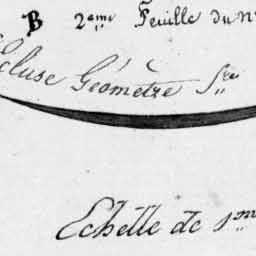 B 2ème Feuille du n
Ecluse Géometre Sre
Echelle de 1m